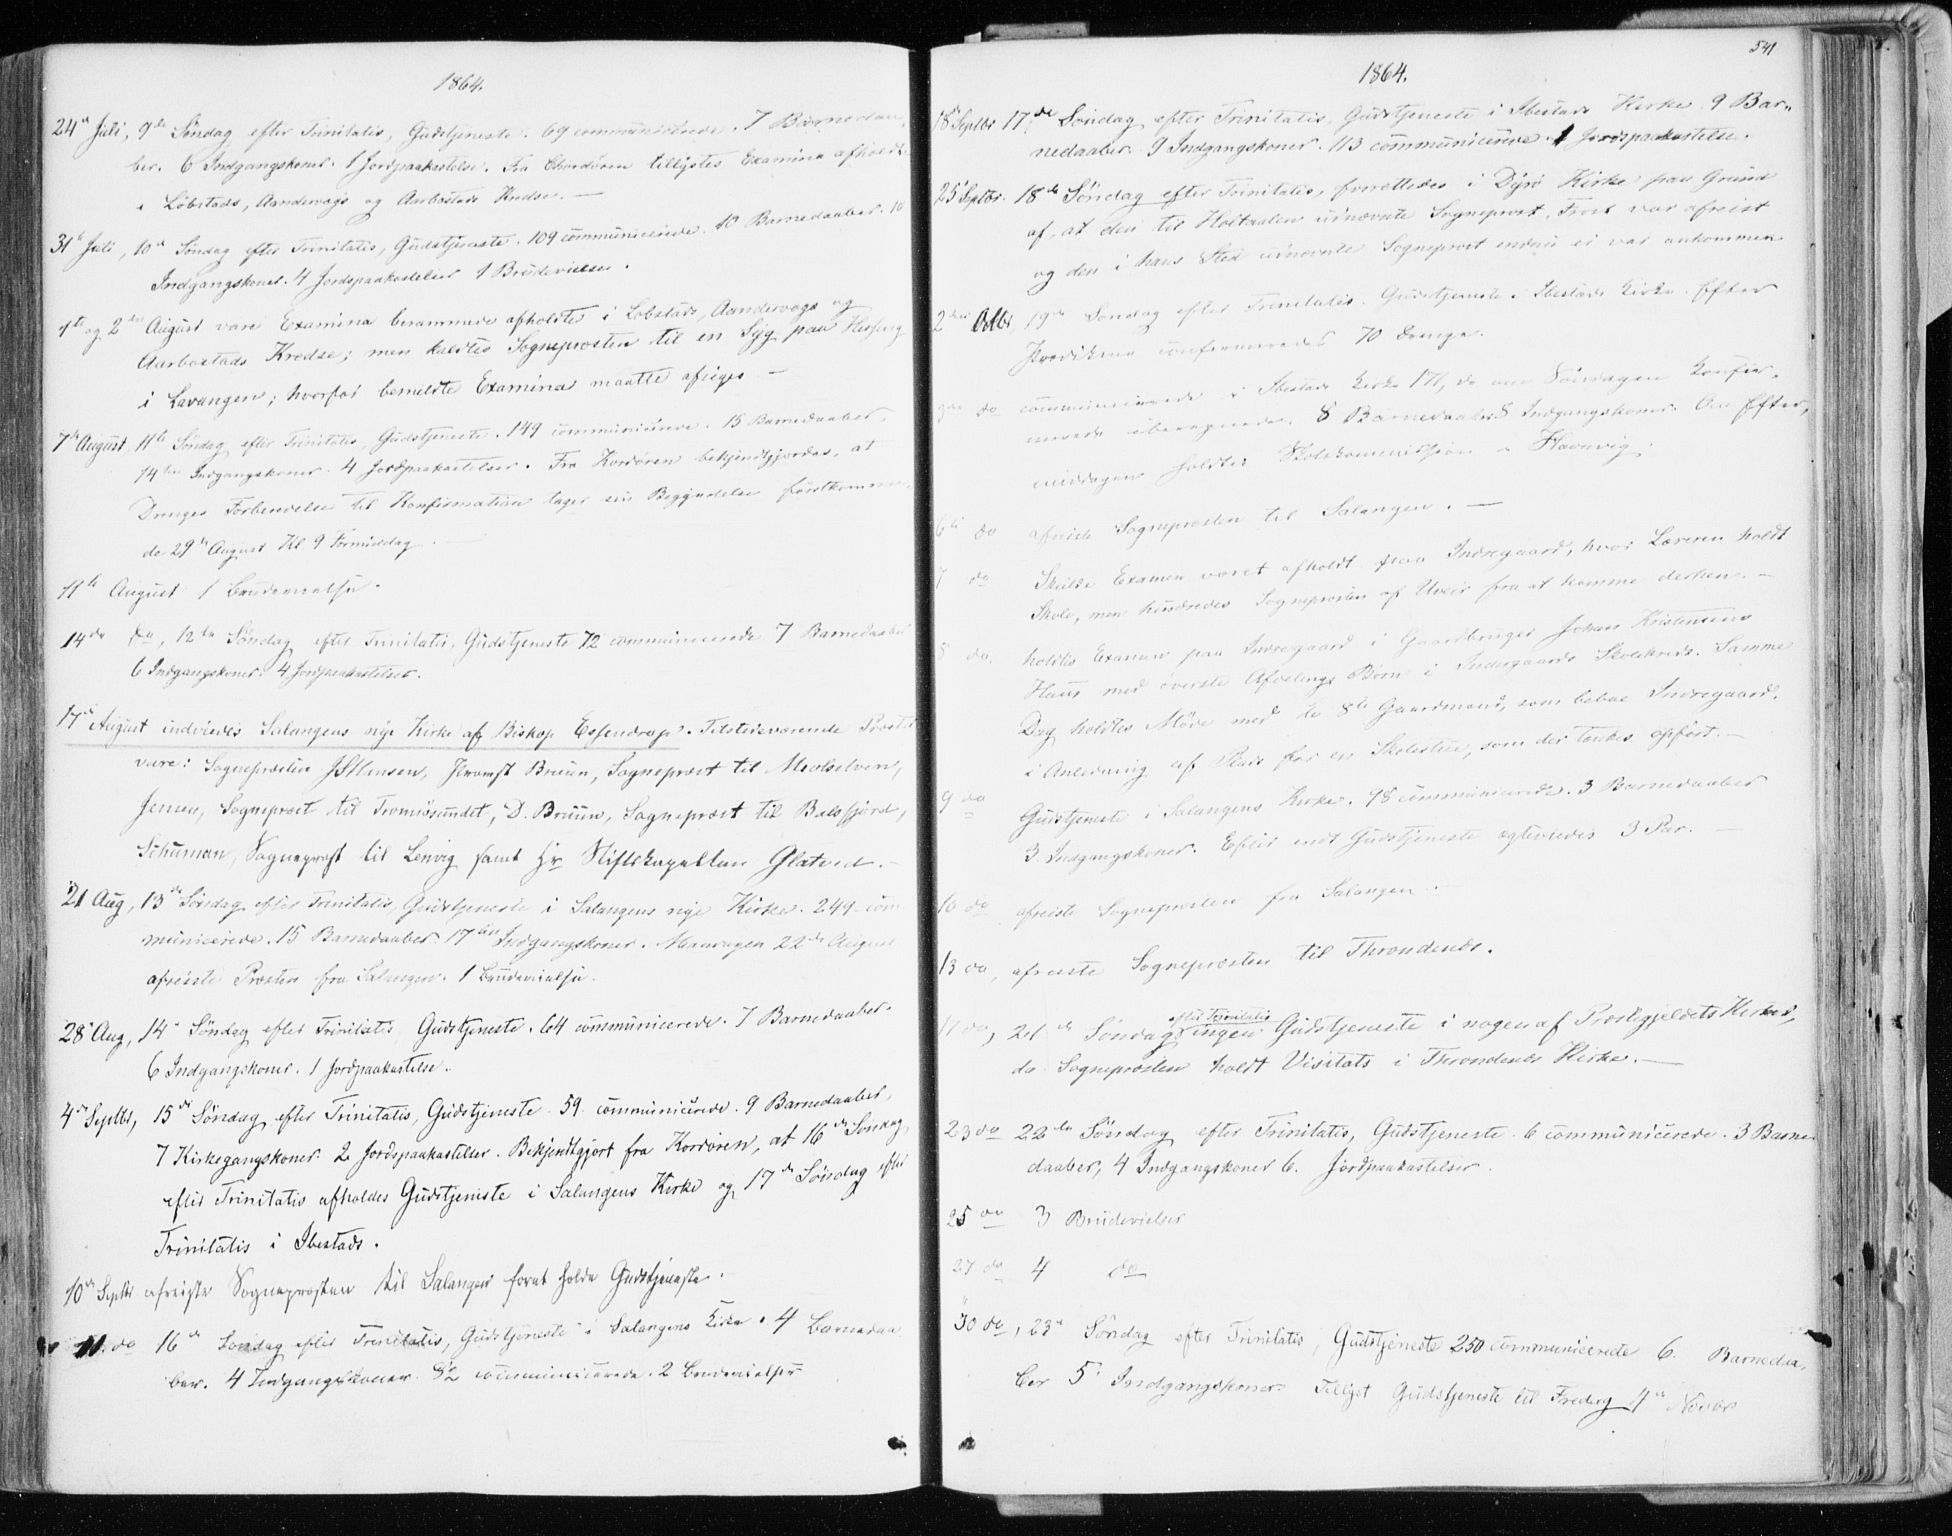 1864.
24de Juli, 9de Söndag efter Trinitatis, Gudstjeneste. 69 communicerede. 7 Barnedaa-
ber. 6 Indgangskoner. 1 Jordpaakastelse. Fra Chordören tillystes Examina afholdte
i Löbstads, Aandervags og Aarbostads Kredse. —
31te Juli, 10de Söndag efter Trinitatis, Gudstjeneste. 109 communicerede. 10 Barnedaaber. 10
Indgangskoner. 4 Jordspaakastelser 1 Brudevielse.
1ste og 2den August vare Examina berammede afholdte i Löbstads, Aandervags og
Aarbostads Kredse; men kaldtes Sognepresten til en Syg paa
i Lavangen; hvorfor bemeldte Examina maatte afsiges —
7de August, 11te Söndag efter Trinitatis, Gudstjeneste. 149 communicerede. 15 Barnedaaber,
14ten Indgangskoner. 4 Jordpaakastelser. Fra Kordören bekjendtgjordes, at
Drenges Forberedelse til Konfirmation tager sin Begyndelse förstkommen-
de 29de August Kl 9 Formiddag. —
11te August 1 Brudevielse.
14de do, 12te Söndag efter Trinitatis, Gudstjeneste 72 communicerede 7 Barnedaaber
6 Indgangskoner. 4 Jordpaakastelser.
17de August indviedes Salangens nye Kirke af Biskop Essendrop. Tilstedeværende Prester
vare: Sognepresten Hansen, Provst Bruun, Sogneprest til Maalselven,
Jensen, Sogneprest til Tromsösundet, D. Bruun, Sogneprest til Balsfjord,
Schuman, Sogneprest til Lenvig samt Hr Stiftskapellan Glatved. —
21 Aug, 13de Söndag efter Trinitatis, Gudstjeneste i Salangens nye Kirke. 249 com-
municerede. 15 Barnedaaber 17ten Indgangskoner. Mandagen 22de August
afreiste Presten fra Salangen. 1 Brudevielse.
28 Aug, 14de Söndag efter Trinitatis, Gudstjeneste. 64 communicerede. 7 Barnedaaber.
6 Indgangskoner. 1 Jordpaakastelse.
4de Septbr, 15de Söndag efter Trinitatis, Gudstjeneste. 59 communicerede. 9 Barnedaaber,
7 Kirkegangskoner. 2 Jordspaakastelser. Bekjendtgjort fra Kordören, at 16de Söndag
efter Trinitatis afholdes Gudstjeneste i Salangens Kirke og 17de Söndag efter
Trinitatis i Ibestads.
10de Septbr afreiste Sognepresten til Salangen forat holde Gudstjeneste.
11 do 16de Söndag efter Trinitatis, Gudstjeneste i Salangens Kirke. 4 Barnedaa-
ber. 4 Indgangskoner. 82 communicerede. 2 Brudevielser
541
1864.
18de Septbr 17de Söndag efter Trinitatis, Gudstjeneste i Ibestads Kirke. 9 Bar-
nedaaber. 9 Indgangskoner. 113 communicerede. 1 Jordspaakastelse.
25 Septbr. 18de Söndag efter Trinitatis, forrettedes i Dyrö Kirke paa Grund
af, at den til Holtaalen udnævnte Sogneprest, Frost var afreist
og den i hans Sted udnævnte Sogneprest endnu ei var ankommen
2den Octbr 19de Söndag efter Trinitatis. Gudstjeneste i Ibestads Kirke. Efter
Prædikenen confirmeredes 70 Drenge.
3die do communicerede i Ibestads Kirke 171, de om Söndagen Konfir-
merede iberegnede. 8 Barnedaaber 8 Indgangskoner. Om Efter,
middagen holdtes Skolekommission i Havnvig.
6te do afreiste Sognepresten til Salangen. —
7 do Skulde Examen været afholdt paa Indregaard, hvor Læreren holdt
Skole, men hindredes Sognepresten af Uveir fra at komme derhen. —
8 do. holdtes Examen paa Indregaard i Gaardbruger Johan Kristensens
Huus med överste Afdelings Börn i Indregaards Skolekreds. Samme
Dag holdtes Möde med de 8te Gaardmænd, som beboe Indregaard,
i Anledning af Plads for en Skolestue, som der tænkes opfört. —
9 do Gudstjeneste i Salangens Kirke. 98 communicerede. 3 Barnedaaber
3 Indgangskoner. Efter endt Gudstjeneste egteviedes 3 Par. —
10 do afreiste Sognepresten fra Salangen. —
13 do, afreiste Sognepresten til Throndenes.
efter Trinitatis
17 do, 21de Söndag ingen Gudstjeneste i nogen af Prestegjeldets Kirker,
da Sognepresten holdt Visitats i Throndenes Kirke. —
23 do 22de Söndag efter Trinitatis, Gudstjeneste. 6 communicerede. 3 Barne-
daaber, 4 Indgangskoner 6. Jordpaakastelser.
25 do 3 Brudevielser
27 do 4 do
30 do, 23de Söndag efter Trinitatis, Gudstjeneste 250 communicerede 6. Barnedaa-
ber 5 Indgangskoner. Tillyst Gudstjeneste til Fredag 4de Novbr